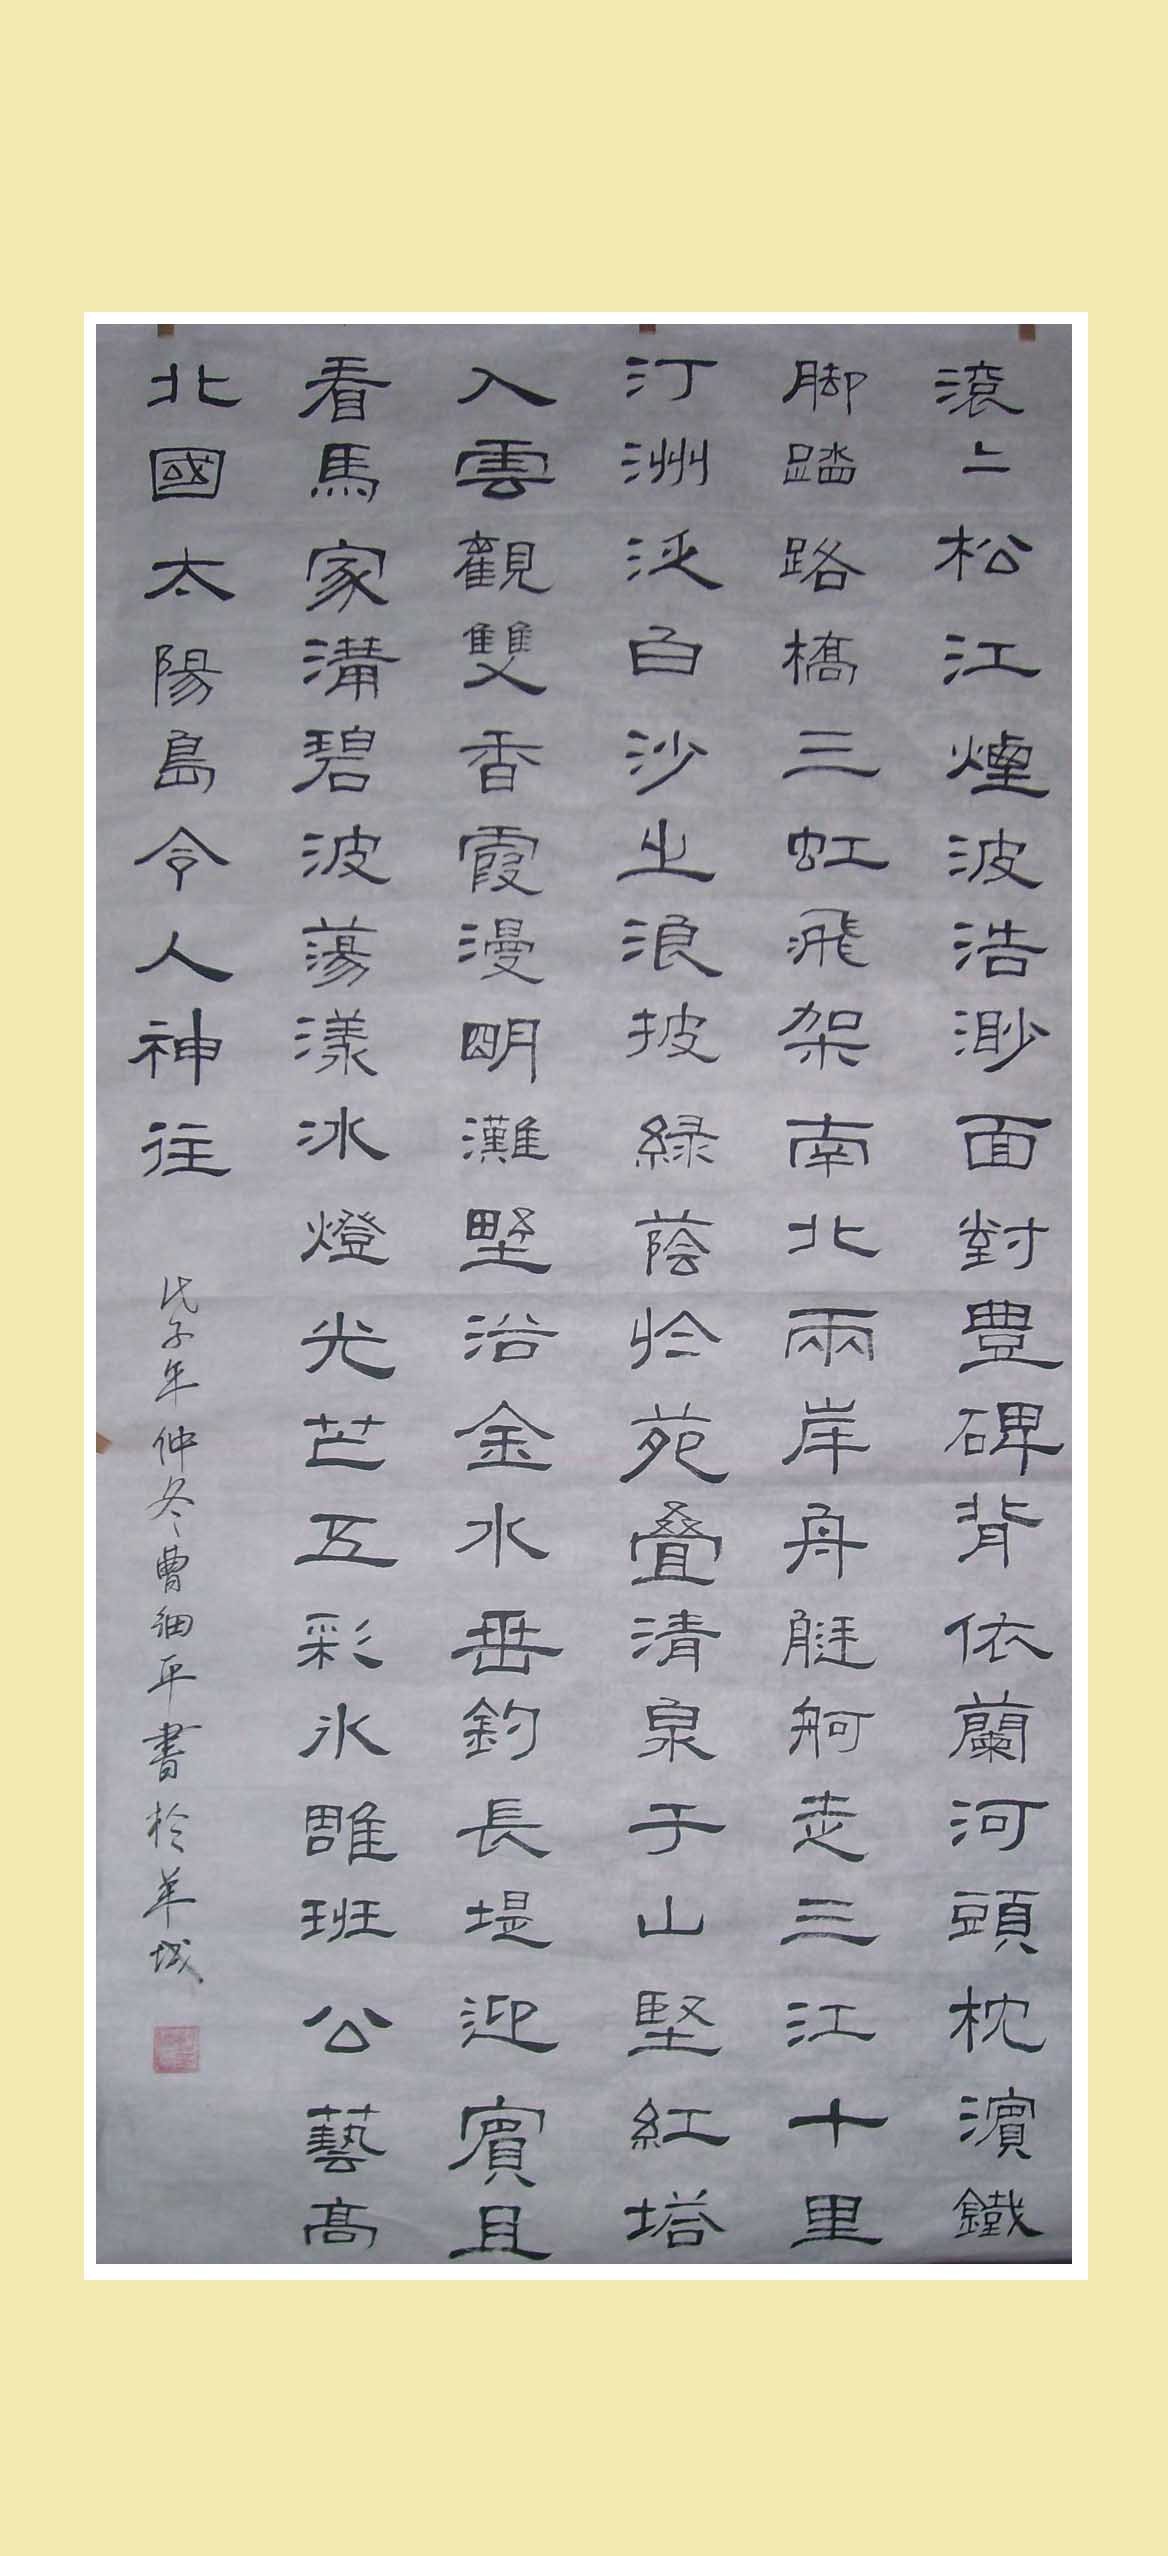 滾〻松江煙波浩渺面對豊碑背依蘭河頭枕濱鐵
脚踏路橋三虹飛架南北兩岸舟艇舸走三江十里
汀洲泛白沙之浪披緑蔭於苑疊清泉于山堅紅塔
入雲觀雙香霞漫明灘墅沿金水垂釣長堤迎賓且
看馬家溝碧波蕩漾冰燈光芒五彩氷雕班公藝高
北國太陽島令人神往
戊子年仲冬曹細平書於羊城